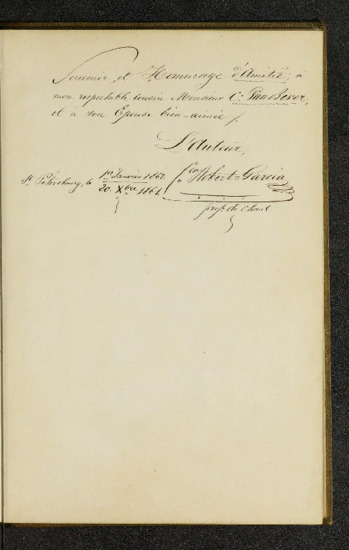 Souvenir et Hommage d'Amitié, à
mon respectable cousin Monsieur C: VanBever,
et à son Épouse bien-aimée /.
L'Auteur,
St. Pétersbourg, le 1er Janvier 1862
20. Xbre 1861.
Hobert-Garcia
prof. de Chant.